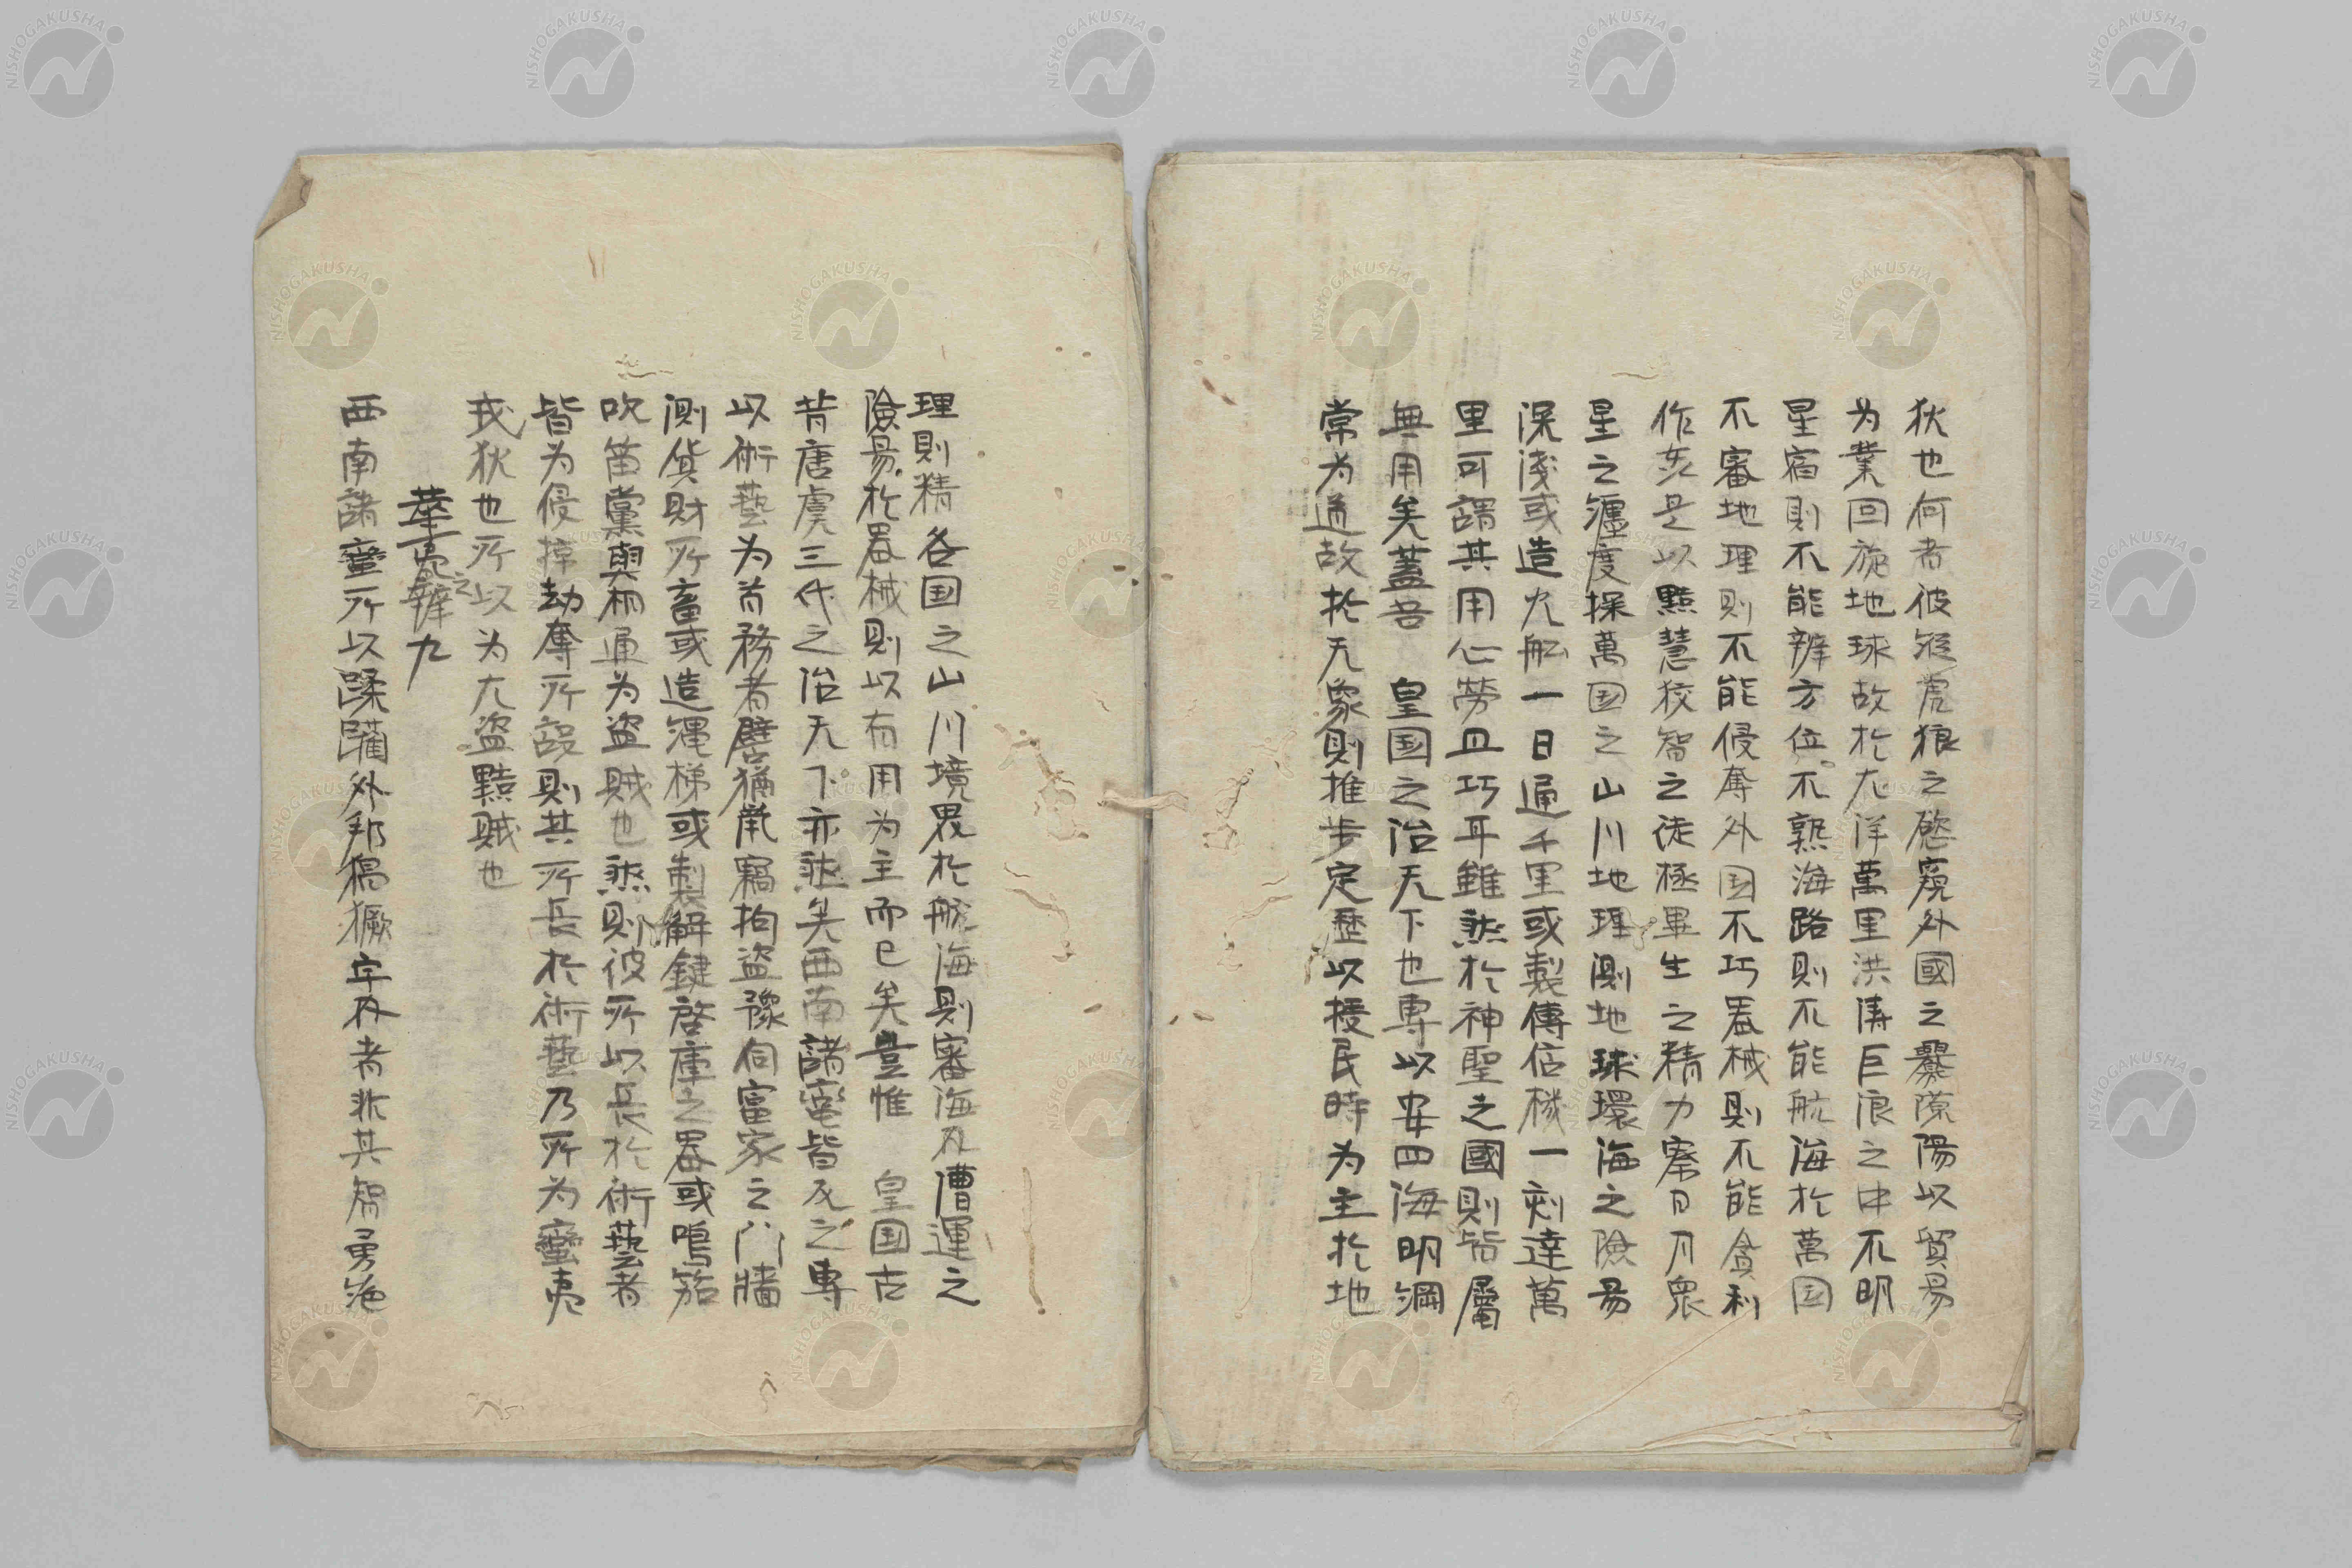 狄也何者彼逞虎狼之慾窺外國之釁隙陽以貿易
为業回旋地球故於大洋萬里洪濤巨浪之中不明
星宿則不能辨方位不熟海路則不能航海於萬国
不審地理則不能侵奪外国不巧器械則不能貪利
作亥是以黠慧狡智之徒極畢生之精力察日月衆
星之躔度探萬国之山川地理測地球環海之險易
深淺或造大舩一日通千里或製傳信機一刻達萬
里可謂其用心勞且巧耳雖然於神聖之國則皆屬
無用矣蓋吾　皇国之治天下也專以安四海明綱
常为道故於天象則推步定歷以授民時为主於地
理則精各国之山川境界於航海則審海及漕運之
險易於器械則以有用为主而已矣豈惟　皇国古
昔唐虞三代之治天下亦然矣西南諸蠻皆反之專
以術藝为首務者譬猶鼠竊狗盜豫伺富家之門牆
測貨財所畜或造繩梯或製解鍵啓庫之器或鳴笳
吹笛黨與相通为盜賊也然則彼所以長於術藝者
皆为侵掠劫奪所設則其所長於術藝乃所为蠻夷
戎狄也所以为大盜黠賊也
華夷之辨九
西南諸蠻所以蹂躪外邦猖獗宇内者非其智勇絶
NISHOGAKUSHA